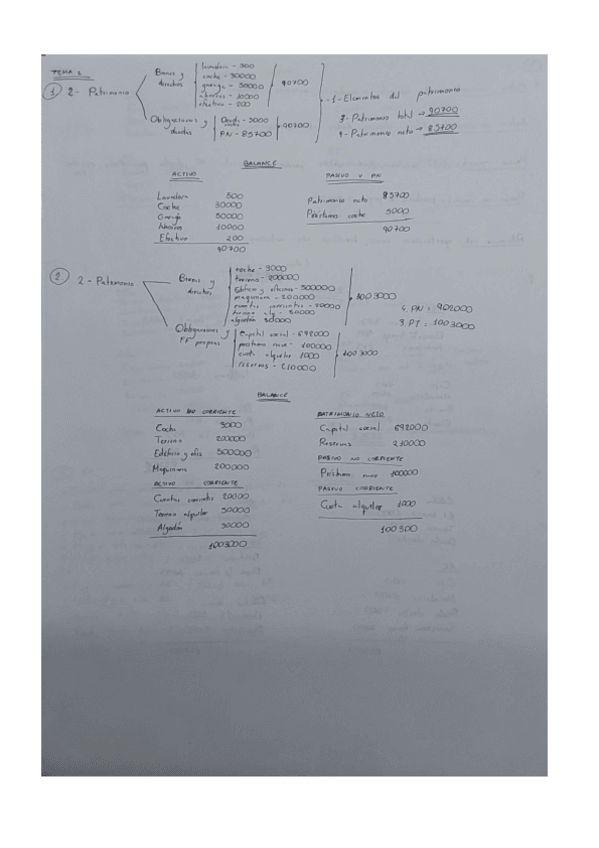 TEMA 1
① 2- Patrimonio
Bienes y derechos
lavadora - 500
coche - 30000
garaje - 50000
ahorros - 10000
efectivo - 200
90700
Obligaciones y deudas
Deuda - 5000
PN - 85700
90700
1- Elementos del patrimonio
3- Patrimonio total → 90700
4- Patrimonio neto → 85700
BALANCE
ACTIVO
PASIVO Y PN
Lavadora 500
Coche 30000
Garaje 50000
Ahorros 10000
Efectivo 200
90700
Patrimonio neto 85700
Préstamo coche 5000
90700
② 2- Patrimonio
Bienes y derechos
coche - 3000
terreno - 200000
Edificio y oficinas - 500000
maquinaria - 200000
cuentas corrientes - 20000
algodón 30000
1003000
4. PN = 902000
3. PT = 1003000
Obligaciones y FF propias
Capital social - 692000
préstamo nave - 100000
cuota alquiler 1000
reservas - 210000
1003000
BALANCE
ACTIVO NO CORRIENTE
Coche 3000
Terreno 200000
Edificio y ofis 500000
Maquinaria 200000
ACTIVO CORRIENTE
Cuentas corrientes 20000
Terreno alquiler 50000
Algodón 30000
1003000
PATRIMONIO NETO
Capital social 692000
Reservas 210000
PASIVO NO CORRIENTE
Préstamo nave 100000
PASIVO CORRIENTE
Cuota alquiler 1000
100300